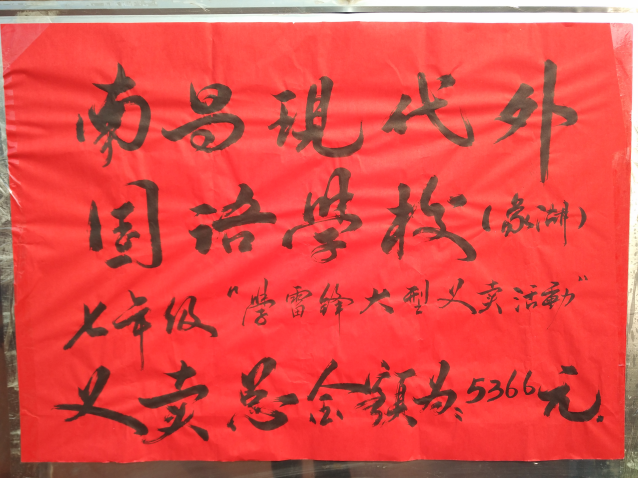 南昌現代外
国语學校(象湖)
七年级"學雷鋒大型义卖活動"
义卖总金額为:5366元.